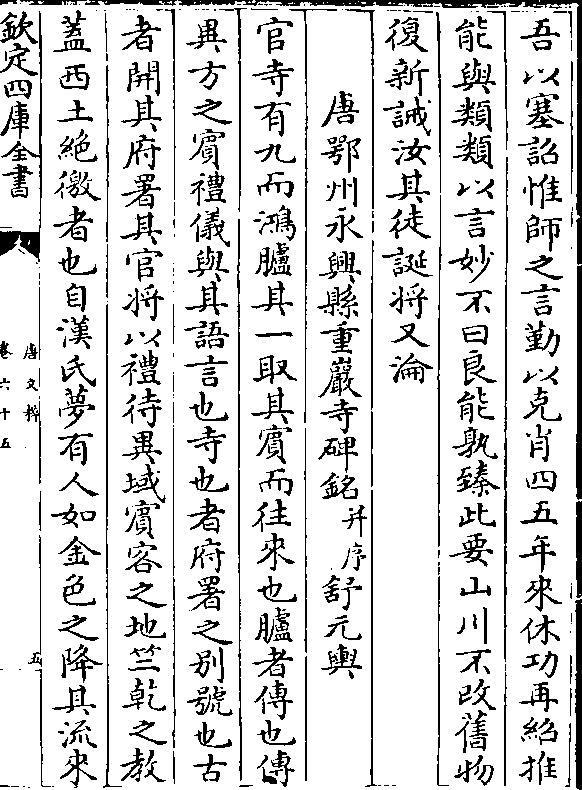 吾以塞詔惟師之言勤以克肖四五年來休功再紹推
能與類類以言妙不曰良能孰臻此要山川不改舊物
復新誡汝其徒誕將又淪
唐鄂州永興縣重巖寺碑銘并序舒元輿
官寺有九而鴻臚其一取其賓而往來也臚者傳也傳
異方之賓禮儀與其語言也寺也者府署之別號也古
者開其府署其官將以禮待異域賓客之地竺乾之教
蓋西土絶徼者也自漢氏夢有人如金色之降其流來
欽定四庫全書
唐文粹
卷六十五
五